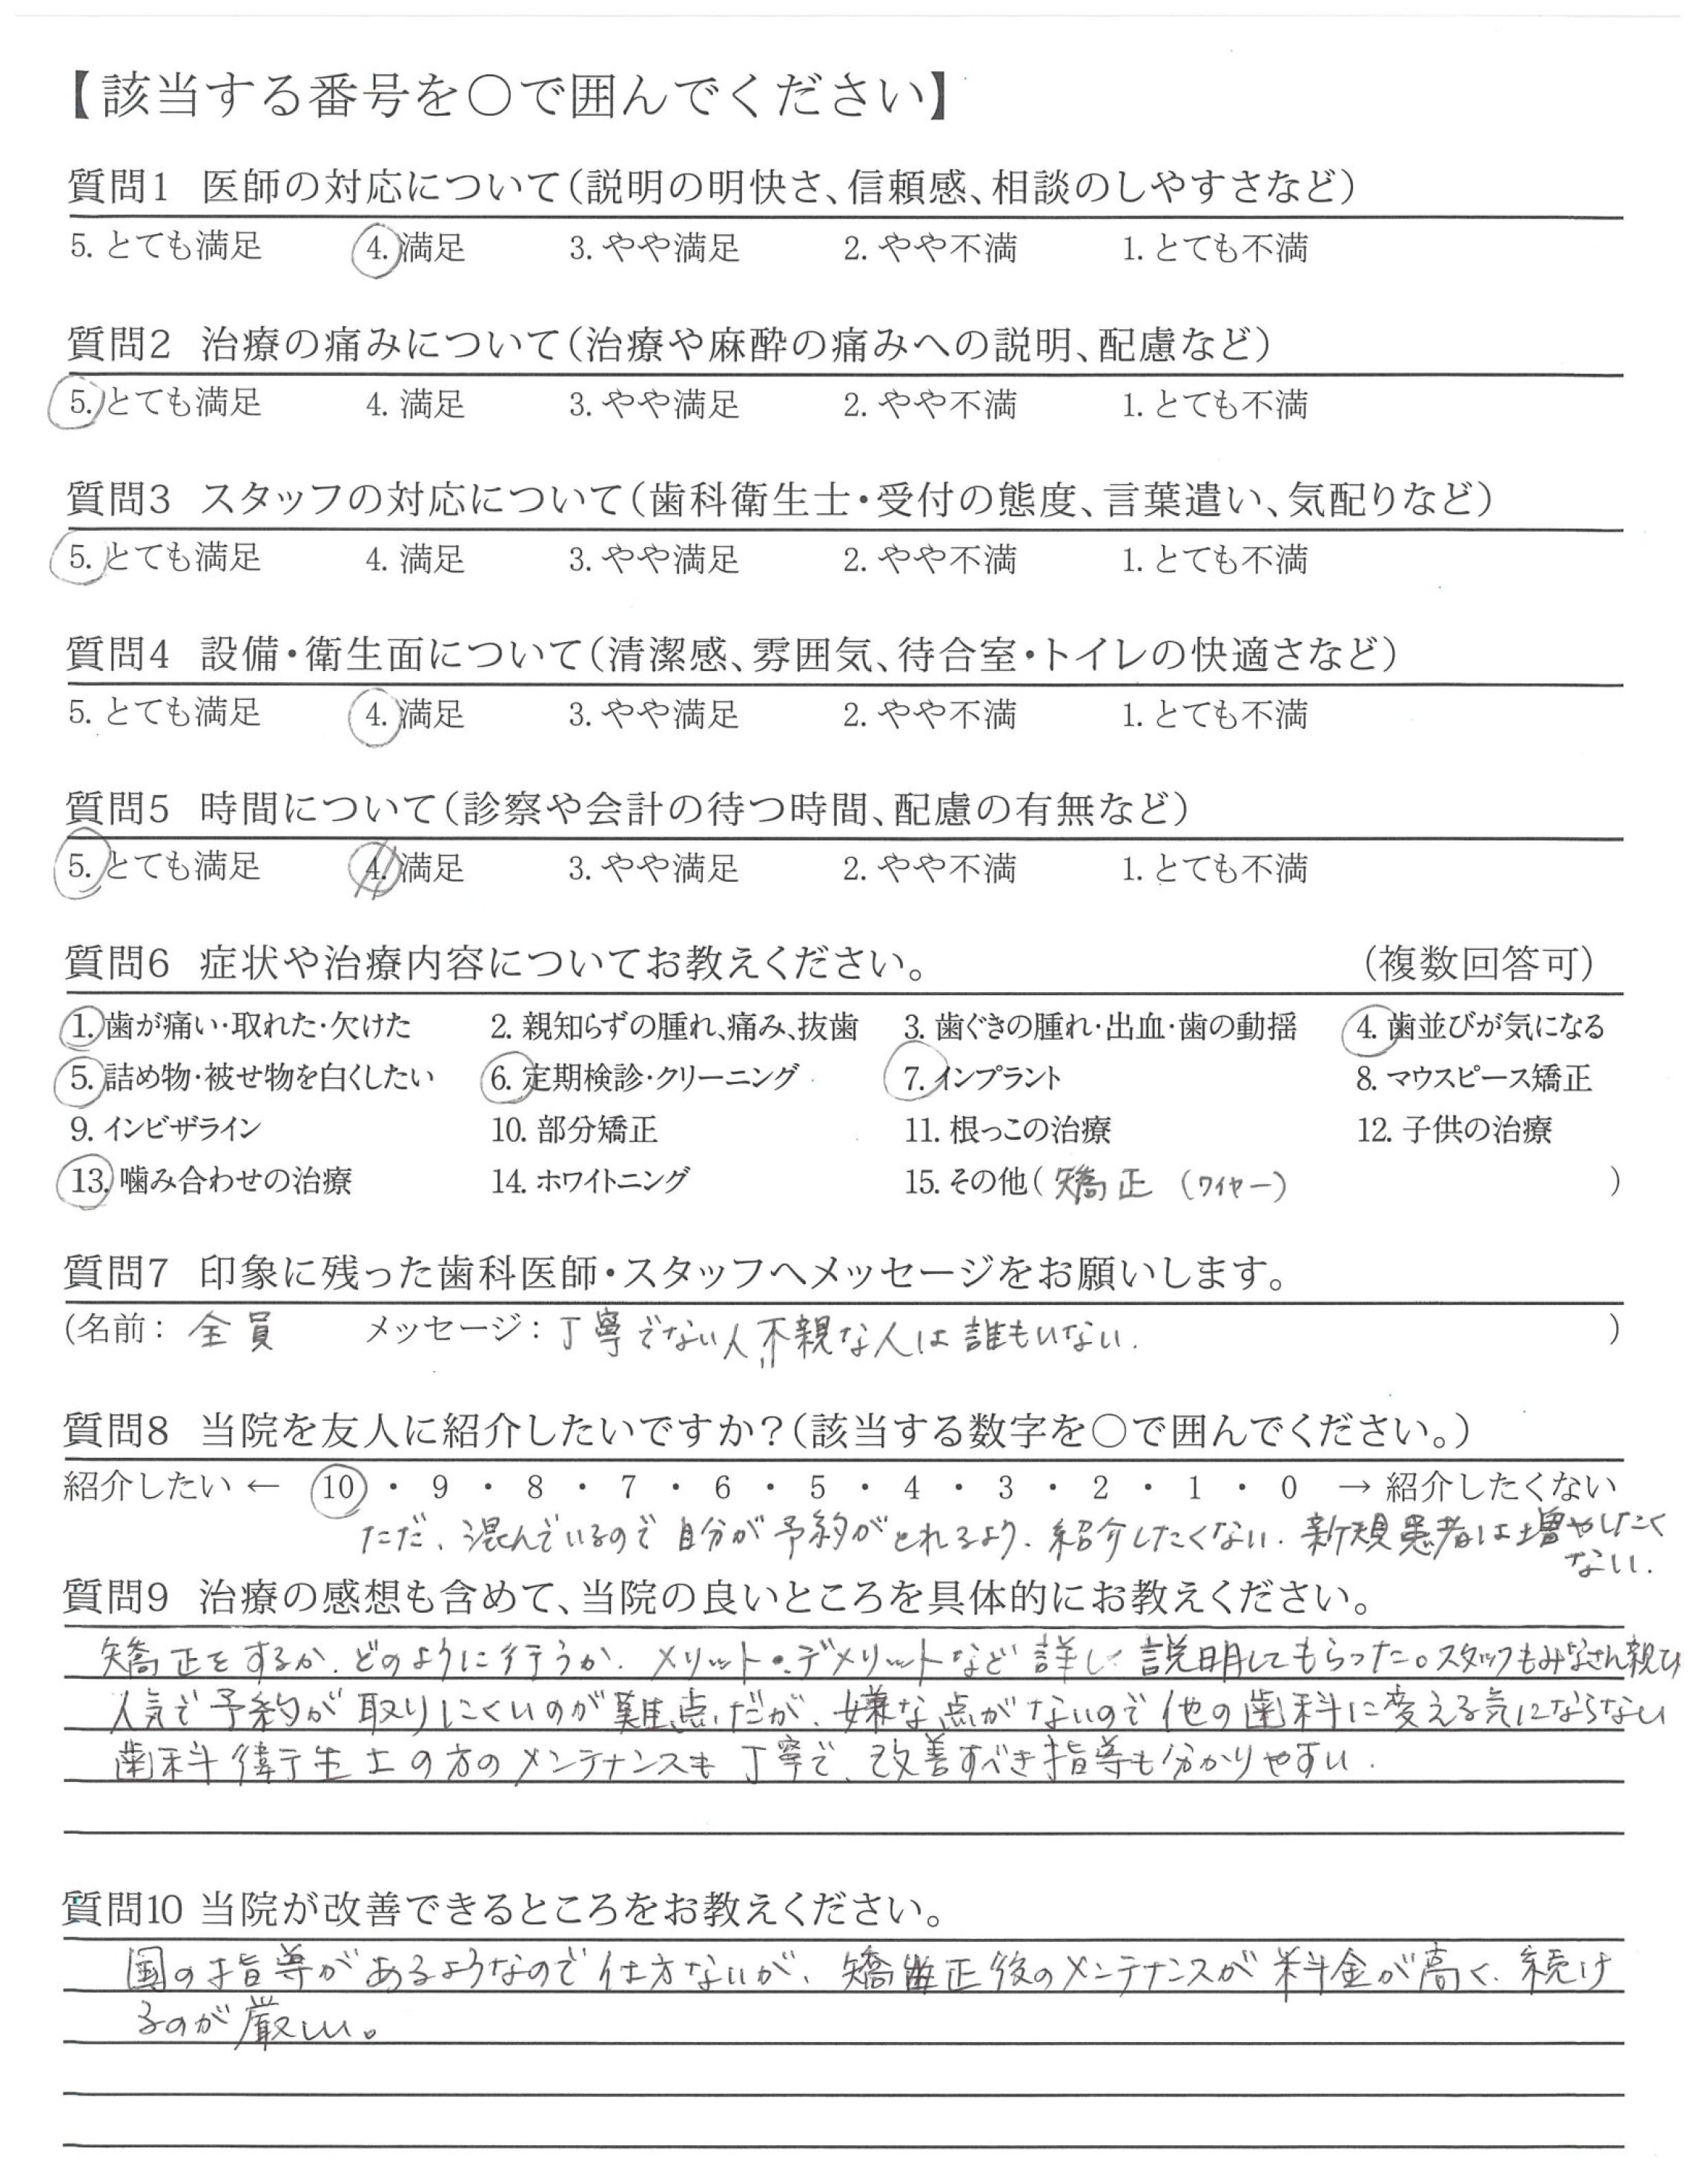 【該当する番号を○で囲んでください】
質問1 医師の対応について(説明の明快さ、信頼感、相談のしやすさなど)
5. とても満足 4. 満足 3. やや満足 2. やや不満 1. とても不満
質問2 治療の痛みについて(治療や麻酔の痛みへの説明、配慮など)
5. とても満足 4. 満足 3. やや満足 2. やや不満 1. とても不満
質問3 スタッフの対応について(歯科衛生士・受付の態度、言葉遣い、気配りなど)
5. とても満足 4. 満足 3. やや満足 2. やや不満 1. とても不満
質問4 設備・衛生面について(清潔感、雰囲気、待合室・トイレの快適さなど)
5. とても満足 4. 満足 3. やや満足 2. やや不満 1. とても不満
質問5 時間について(診察や会計の待つ時間、配慮の有無など)
5. とても満足 4. 満足 3. やや満足 2. やや不満 1. とても不満
質問6 症状や治療内容についてお教えください。 (複数回答可)
1. 歯が痛い・取れた・欠けた 2. 親知らずの腫れ、痛み、抜歯 3. 歯ぐきの腫れ・出血・歯の動揺 4. 歯並びが気になる
5. 詰め物・被せ物を白くしたい 6. 定期検診・クリーニング 7. インプラント 8. マウスピース矯正
9. インビザライン 10. 部分矯正 11. 根っこの治療 12. 子供の治療
13. 噛み合わせの治療 14. ホワイトニング 15. その他( 矯正 (ワイヤー) )
質問7 印象に残った歯科医師・スタッフへメッセージをお願いします。
(名前: 全員 メッセージ: 丁寧でない人、不親な人は誰もいない. )
質問8 当院を友人に紹介したいですか?(該当する数字を○で囲んでください。)
紹介したい ← 10 ・ 9 ・ 8 ・ 7 ・ 6 ・ 5 ・ 4 ・ 3 ・ 2 ・ 1 ・ 0 → 紹介したくない
ただ、混んでいるので自分が予約がとれるよう、紹介したくない. 新規患者は増やしたく
ない.
質問9 治療の感想も含めて、当院の良いところを具体的にお教えください。
矯正をするか、どのように行うか、メリット・デメリットなど詳しく説明してもらった。スタッフもみなさん親切
人気で予約が取りにくいのが難点だが、嫌な点がないので他の歯科に変える気にならない
歯科衛生士の方のメンテナンスも丁寧で、改善すべき指導も分かりやすい.
質問10 当院が改善できるところをお教えください。
国の指導があるようなので仕方ないが、矯正後のメンテナンスが料金が高く、続け
るのが厳しい。